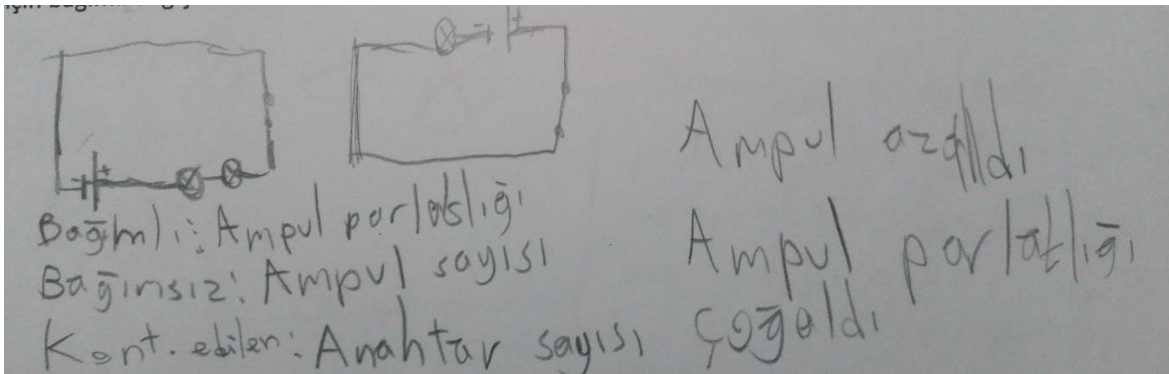 için
Bağımlı: Ampul parlaklığı
Bağımsız: Ampul sayısı
Kont. edilen: Anahtar sayısı
Ampul azaldı
Ampul parlatlığı
çoğaldı